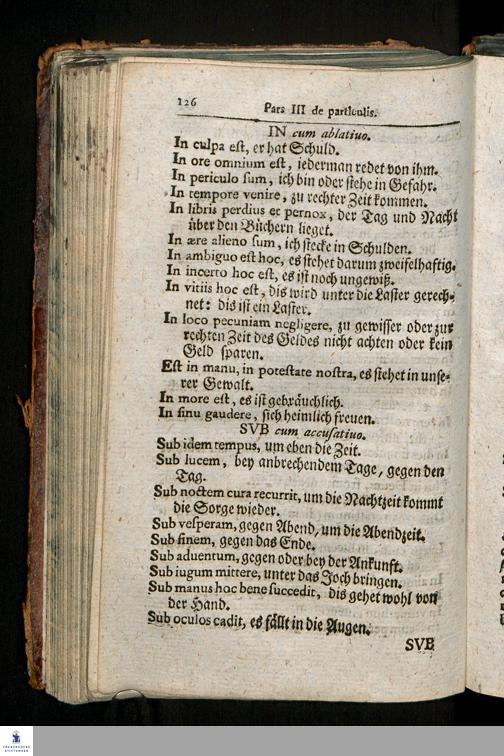 126 Pars III de particulis.
IN cum ablatiuo.
In culpa est, er hat Schuld.
In ore omnium est, iederman redet von ihm.
In periculo sum, ich bin oder stehe in Gefahr.
In tempore venire, zu rechter Zeit kommen.
In libris perdius et pernox, der Tag und Nacht
über den Büchern lieget.
In ære alieno sum, ich stecke in Schulden.
In ambiguo est hoc, es stehet darum zweifelhaftig.
In incerto hoc est, es ist noch ungewiß.
In vitiis hoc est, dis wird unter die Laster gerech-
net: dis ist ein Laster.
In loco pecuniam negligere, zu gewisser oder zur
rechten Zeit des Geldes nicht achten oder kein
Geld sparen.
Est in manu, in potestate nostra, es stehet in unse-
rer Gewalt.
In more est, es ist gebräuchlich.
In sinu gaudere, sich heimlich freuen.
SVB cum accusatiuo.
Sub idem tempus, um eben die Zeit.
Sub lucem, bey anbrechendem Tage, gegen den
Tag.
Sub noctem cura recurrit, um die Nachtzeit kommt
die Sorge wieder.
Sub vesperam, gegen Abend, um die Abendzeit.
Sub finem, gegen das Ende.
Sub aduentum, gegen oder bey der Ankunft.
Sub iugum mittere, unter das Joch bringen.
Sub manus hoc bene succedit, dis gehet wohl von
der Hand.
Sub oculos cadit, es fällt in die Augen.
SVB
FRANCKESCHE
STIFTUNGEN